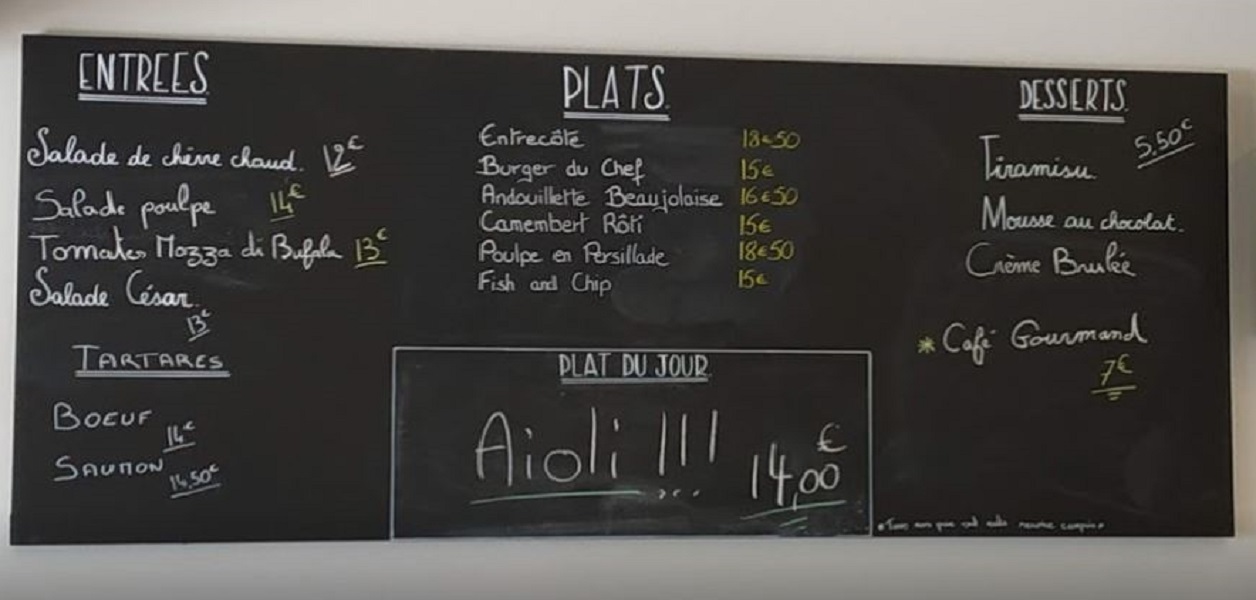 ENTREES
Salade de chèvre chaud. 12€
Salade poulpe 14€
Tomates Mozza di Bufala 13€
Salade César.
13€
TARTARES
BOEUF
14€
SAUMON
14,50€
PLATS.
Entrecôte 18€50
Burger du Chef 15€
Andouillette Beaujolaise 16€50
Camembert Rôti 15€
Poulpe en Persillade 18€50
Fish and Chip 15€
PLAT DU JOUR
Aioli !!! 14,00€
DESSERTS.
5.50€
Tiramisu
Mousse au chocolat.
Crème Brulée
* Café Gourmand
7€